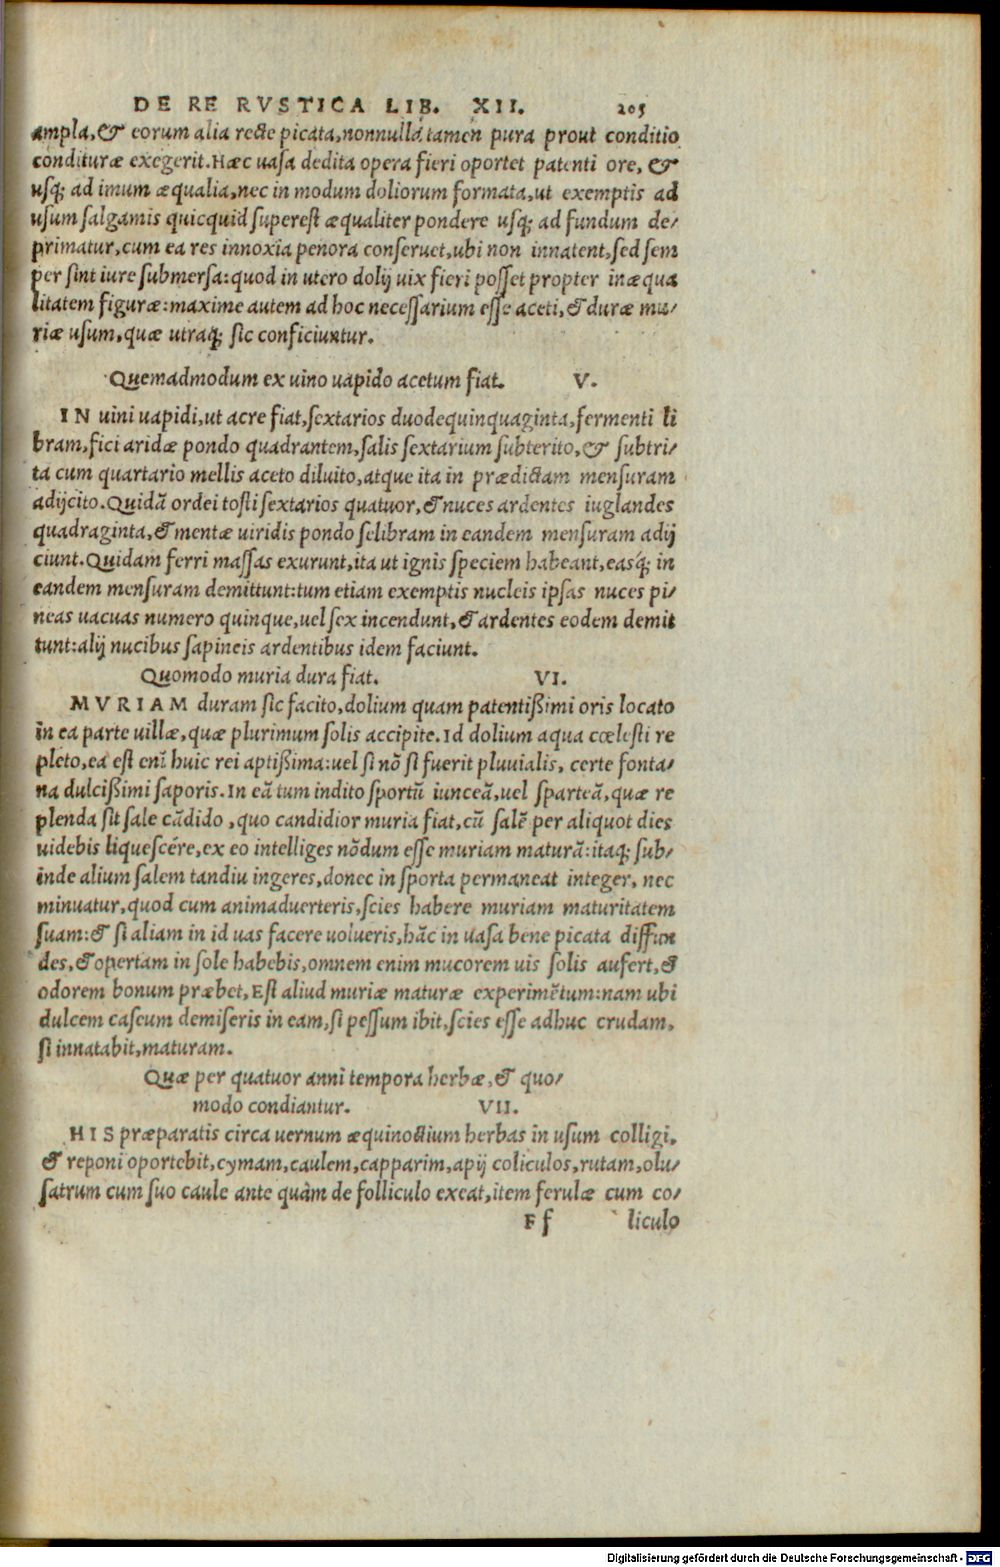 DE RE RVSTICA LIB. XII. 205
ampla, & eorum alia recte picata, nonnulla tamen pura prout conditio
condituræ exegerit. Hæc uasa dedita opera fieri oportet patenti ore, &
usq; ad imum æqualia, nec in modum doliorum formata, ut exemptis ad
usum salgamis quicquid superest æqualiter pondere usq; ad fundum de/
primatur, cum ea res innoxia penora conseruet, ubi non innatent, sed sem
per sint iure submersa: quod in utero dolij uix fieri posset propter inæqua
litatem figuræ: maxime autem ad hoc necessarium esse aceti, & duræ mu/
riæ usum, quæ utraq; sic conficiuntur.
Quemadmodum ex uino uapido acetum fiat. V.
IN uini uapidi, ut acre fiat, sextarios duodequinquaginta, fermenti li
bram, fici aridæ pondo quadrantem, salis sextarium subterito, & subtri/
ta cum quartario mellis aceto diluito, atque ita in prædictam mensuram
adijcito. Quidā ordei tosti sextarios quatuor, & nuces ardentes iuglandes
quadraginta, & mentæ uiridis pondo selibram in eandem mensuram adij
ciunt. Quidam ferri massas exurunt, ita ut ignis speciem habeant, easq́; in
eandem mensuram demittunt: tum etiam exemptis nucleis ipsas nuces pi/
neas uacuas numero quinque, uel sex incendunt, & ardentes eodem demit
tunt: alij nucibus sapineis ardentibus idem faciunt.
Quomodo muria dura fiat. VI.
MVRIAM duram sic facito, dolium quam patentißimi oris locato
in ea parte uillæ, quæ plurimum solis accipite. Id dolium aqua cœlesti re
pleto, ea est enī huic rei aptißima: uel si nō si fuerit pluuialis, certe fonta/
na dulcißimi saporis. In eā tum indito sportū iunceā, uel sparteā, quæ re
plenda sit sale cādido, quo candidior muria fiat, cū salē per aliquot dies
uidebis liquescére, ex eo intelliges nōdum esse muriam maturā: itaq; sub/
inde alium salem tandiu ingeres, donec in sporta permaneat integer, nec
minuatur, quod cum animaduerteris, scies habere muriam maturitatem
suam: & si aliam in id uas facere uolueris, hāc in uasa bene picata diffun
des, & opertam in sole habebis, omnem enim mucorem uis solis aufert, &
odorem bonum præbet, Est aliud muriæ maturæ experimētum: nam ubi
dulcem caseum demiseris in eam, si pessum ibit, scies esse adhuc crudam,
si innatabit, maturam.
Quæ per quatuor anni tempora herbæ, & quo/
modo condiantur. VII.
HIS præparatis circa uernum æquinoctium herbas in usum colligi,
& reponi oportebit, cymam, caulem, capparim, apij coliculos, rutam, olu/
satrum cum suo caule ante quàm de folliculo exeat, item ferulæ cum co/
Ff liculo
Digitalisierung gefördert durch die Deutsche Forschungsgemeinschaft - DFG